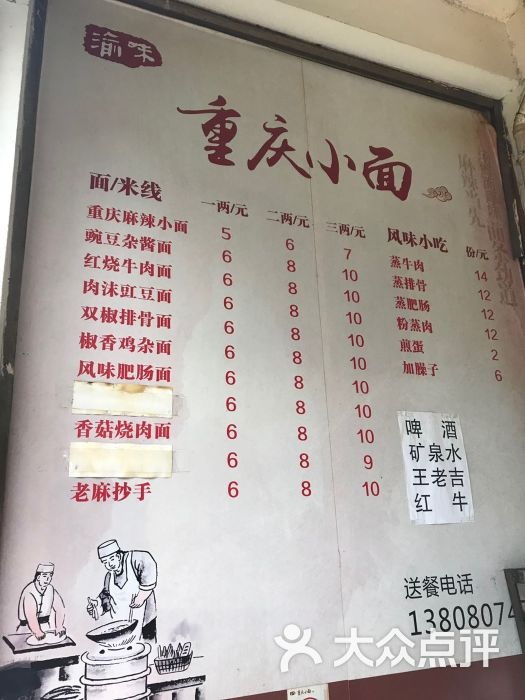 渝味
重庆小面
面/米线 一两/元 二两/元 三两/元
重庆麻辣小面 5 6 7
豌豆杂酱面 6 8 10
红烧牛肉面 6 8 10
肉沫豇豆面 6 8 10
双椒排骨面 6 8 10
椒香鸡杂面 6 8 10
风味肥肠面 6 8 10
6 8 10
香菇烧肉面 6 8 10
6 8 9
老麻抄手 6 8 10
风味小吃 份/元
蒸牛肉 14
蒸排骨 12
蒸肥肠 12
粉蒸肉 12
煎蛋 2
加臊子 6
啤 酒
矿泉水
王老吉
红 牛
送餐电话
1380807
大众点评